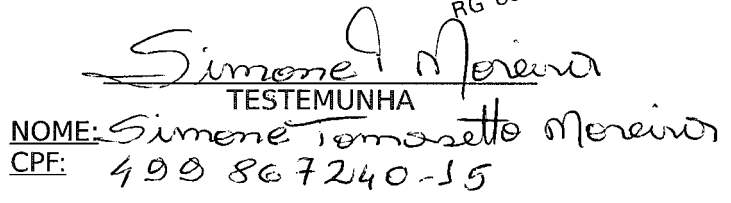 RG
Simone T Moreira
TESTEMUNHA
NOME: Simone Tomasetto Moreira
CPF: 499 867240-15